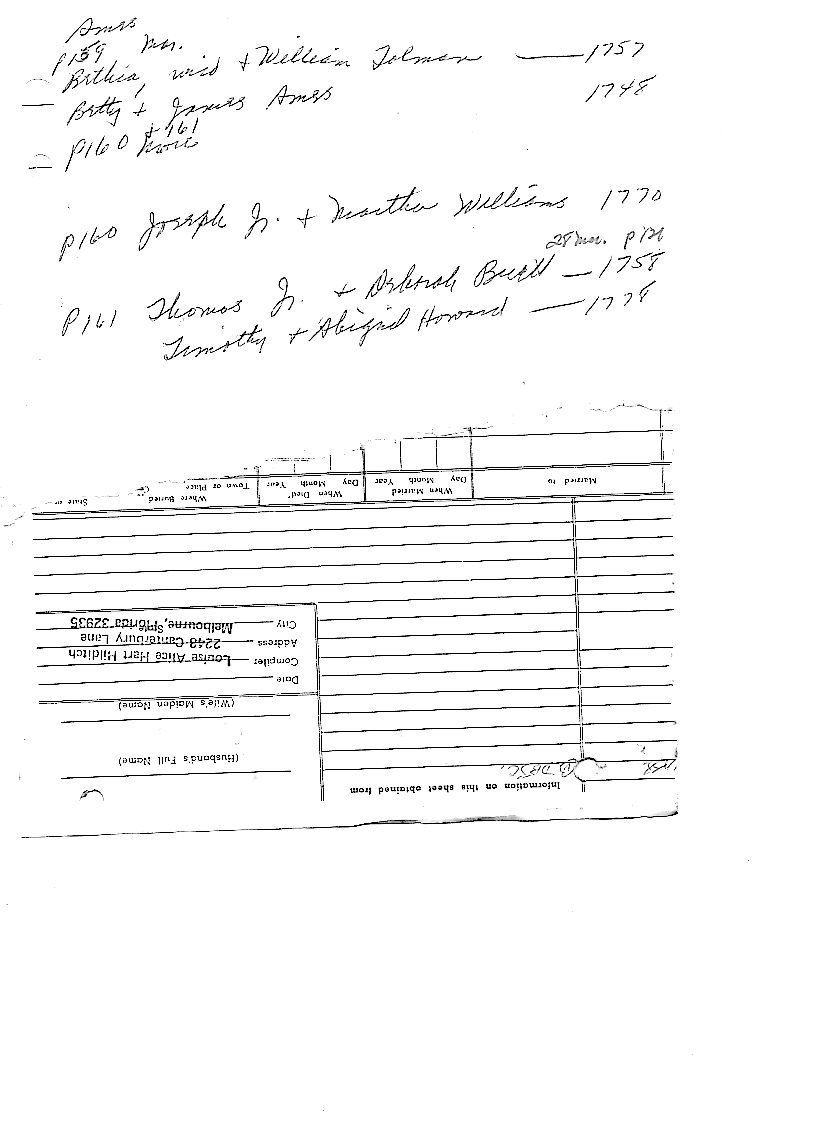 Ames
P159 Mar.
Bethia, wid + William Tolman — 1757
Betty + James Ames 1748
P160 + 161
more
P160 Joseph Jr. + Martha Williams 1770
28 Mar.
P161 Thomas Jr. + Deborah Buell — 1758
Timothy + Abigail Howard — 1778
Information on this sheet obtained from
(Husband's Full Name)
(Wife's Maiden Name)
Date
Compiler Louise Alice Hart Hilditch
Address 2248 Canterbury Lane
City Melbourne, Florida 32935 State
Married to When Married Day Month Year When Died Day Month Year Where Buried Town or Place State or